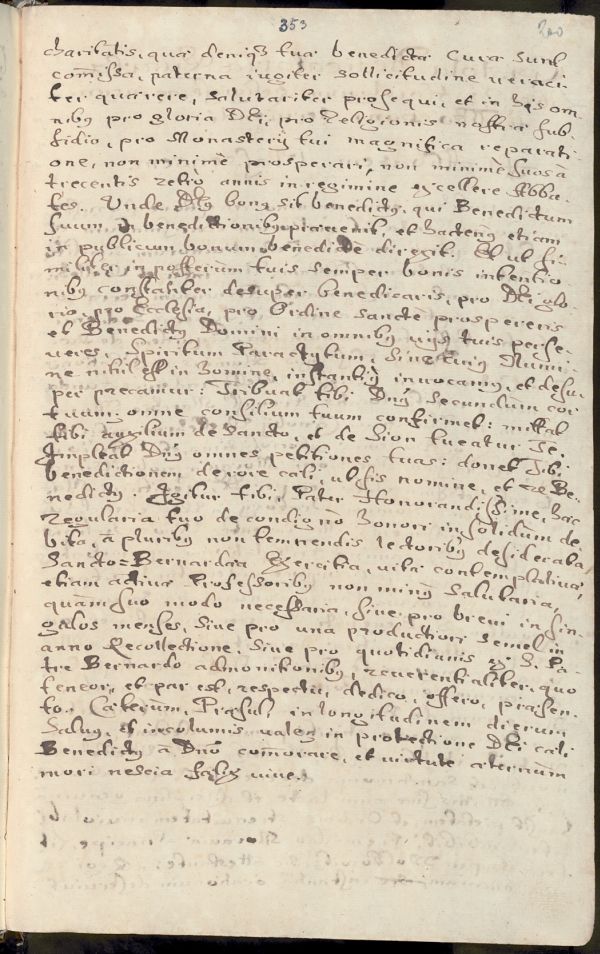 353
charitatis, quæ deniq3 tuæ benedictæ Curæ sunt
com̃issa, paterna iugiter sollicitudine veraci-
ter quærere, salutariter prosequi, et in his om-
nibꝯ pro gloria DEi, pro Religionis nostræ sub-
sidio, pro Monasterij tui magnifica reparati-
one, non minimè prosperari, non minimè suos a
trecentis retrò annis in regimine excellere Abba-
tes. Unde Dꝯ bonꝯ sit benedictꝯ, qui Benedictum
suum in benedictionibꝯ prævenit, et hactenꝯ etiam
in publicum bonum benedictè dirigit. Et ut si-
militer in posterùm tuis semper bonis intentio-
nibꝯ constanter desuper benedicaris, pro DEi glo-
ria, pro Ecclesia, pro Ordine sanctè prospereris
et Benedictꝯ Domini in omnibꝯ vijs tuis perse-
veres, Spiritum Paraclytum, sine cuiꝯ Numi-
ne nihil est in homine, instantiꝯ invocamꝯ, et desu-
per precamur: Tribuat tibi Dnꝯ secundùm cor
tuum: omne consilium tuum confirmet: mittat
tibi auxilium de Sancto, et de Sion tueatur Te.
Impleat Dnꝯ omnes petitiones tuas: donet Tibi
benedictionem de rore cæli, ut sis nomine, et re Be-
nedictꝯ. Igitur tibi, Pater Honorandissime, hæc
regularia tuo de condigno honori in solidum de-
bita, à pluribꝯ non temnendis lectoribꝯ desiderata,
Sancto=Bernardæa Exercitia, vitæ contemplativæ,
etiam activæ Professoribꝯ non minꝯ salutaria,
quàm suo modo necessaria, sive pro brevi in sin-
gulos menses, sive pro una productiori semel in
anno Recollectione, sive pro quotidianis ex S. Pa-
tre Bernardo admonitionibꝯ, reverentialiter, quo
teneor, et par est, respectu, dedico, offero, præsen-
to. Cæterum, Præsul, in longitudinem dierum
Salvꝯ, et incolumis vale, in protectione DEi cæli
Benedictꝯ à Dno com̃orare, et virtute æternùm
mori nescia fælix vive.